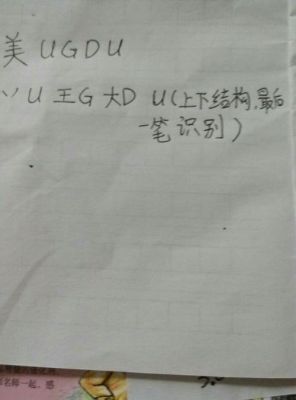 美 UGDU
丷 U 王G 大D U(上下结构,最后
一笔识别)
名师一起,感